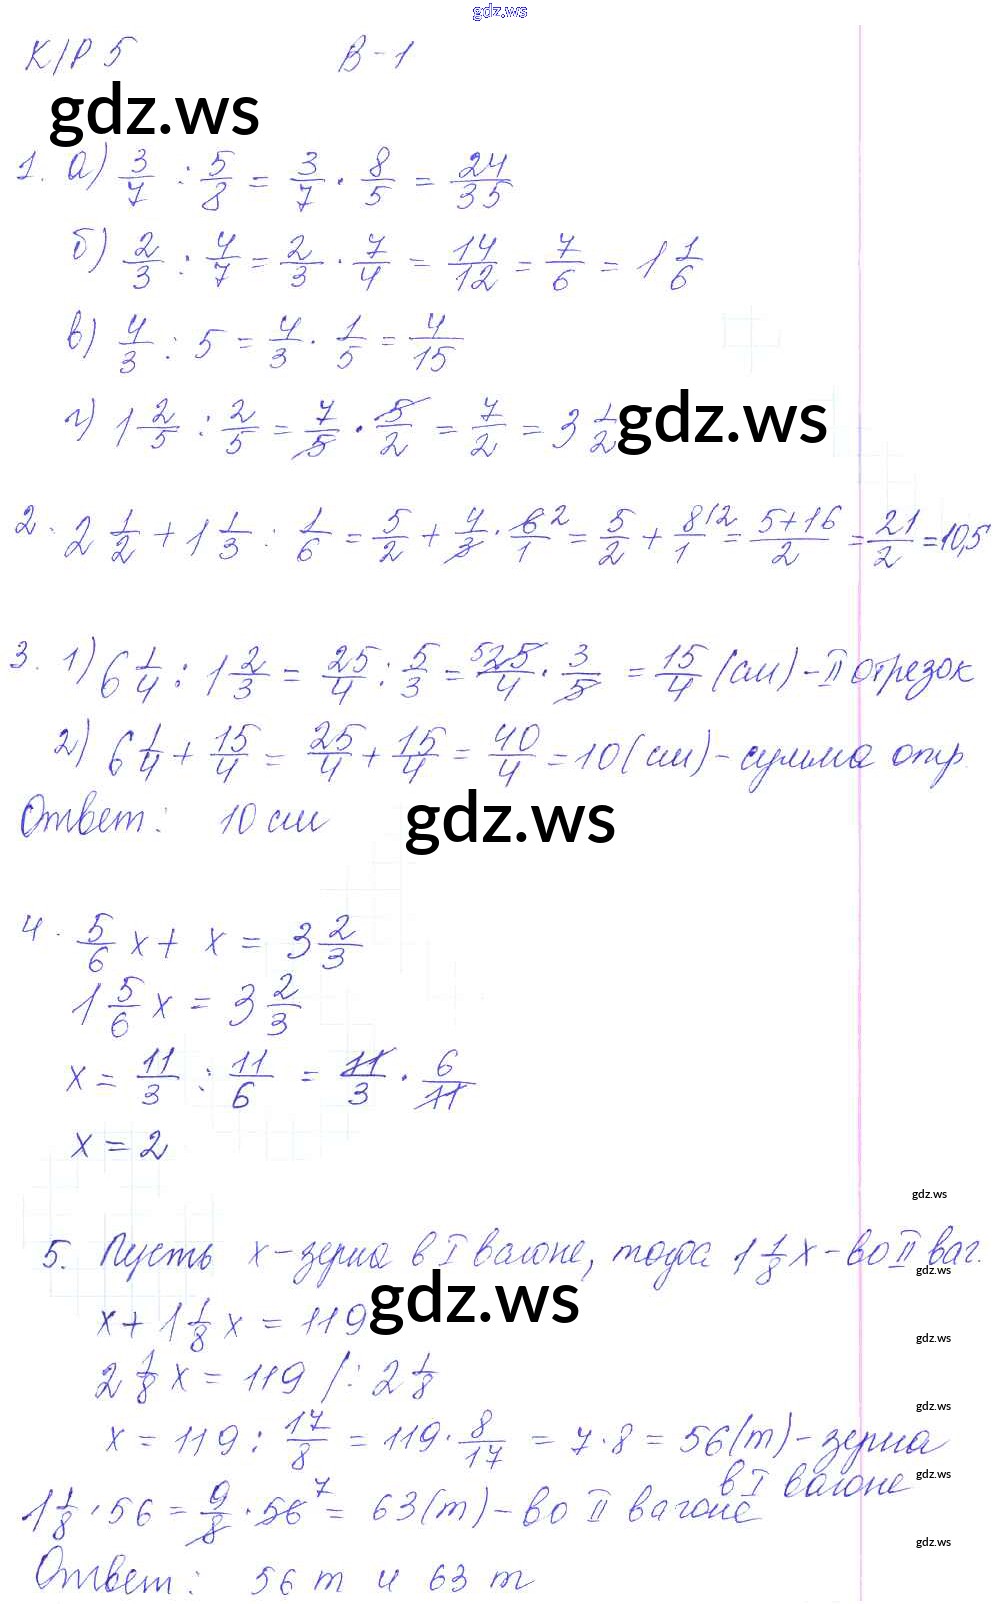 gdz.ws
К/Р 5 В-1
gdz.ws
1. а) 3/7 : 5/8 = 3/7 · 8/5 = 24/35
б) 2/3 : 4/7 = 2/3 · 7/4 = 14/12 = 7/6 = 1 1/6
в) 4/3 : 5 = 4/3 · 1/5 = 4/15
г) 1 2/5 : 2/5 = 7/5 · 5/2 = 7/2 = 3 1/2
gdz.ws
2. 2 1/2 + 1 1/3 : 1/6 = 5/2 + 4/3 · 6/1 2 = 5/2 + 8/1 (2 = 5+16/2 = 21/2 = 10,5
3. 1) 6 1/4 : 1 2/3 = 25/4 : 5/3 = 5 25/4 · 3/5 = 15/4 (см) - II отрезок
2) 6 1/4 + 15/4 = 25/4 + 15/4 = 40/4 = 10 (см) - сумма отр.
Ответ: 10 см
gdz.ws
4. 5/6 x + x = 3 2/3
1 5/6 x = 3 2/3
x = 11/3 : 11/6 = 11/3 · 6/11
x = 2
gdz.ws
5. Пусть x - зерна в I вагоне, тогда 1 1/8 x - во II ваг.
gdz.ws
x + 1 1/8 x = 119
gdz.ws
gdz.ws
2 1/8 x = 119 /: 2 1/8
gdz.ws
x = 119 : 17/8 = 119 · 8/17 = 7 · 8 = 56 (т) - зерна
в I вагоне
gdz.ws
1 1/8 · 56 = 9/8 · 56 7 = 63 (т) - во II вагоне
gdz.ws
Ответ: 56 т и 63 т